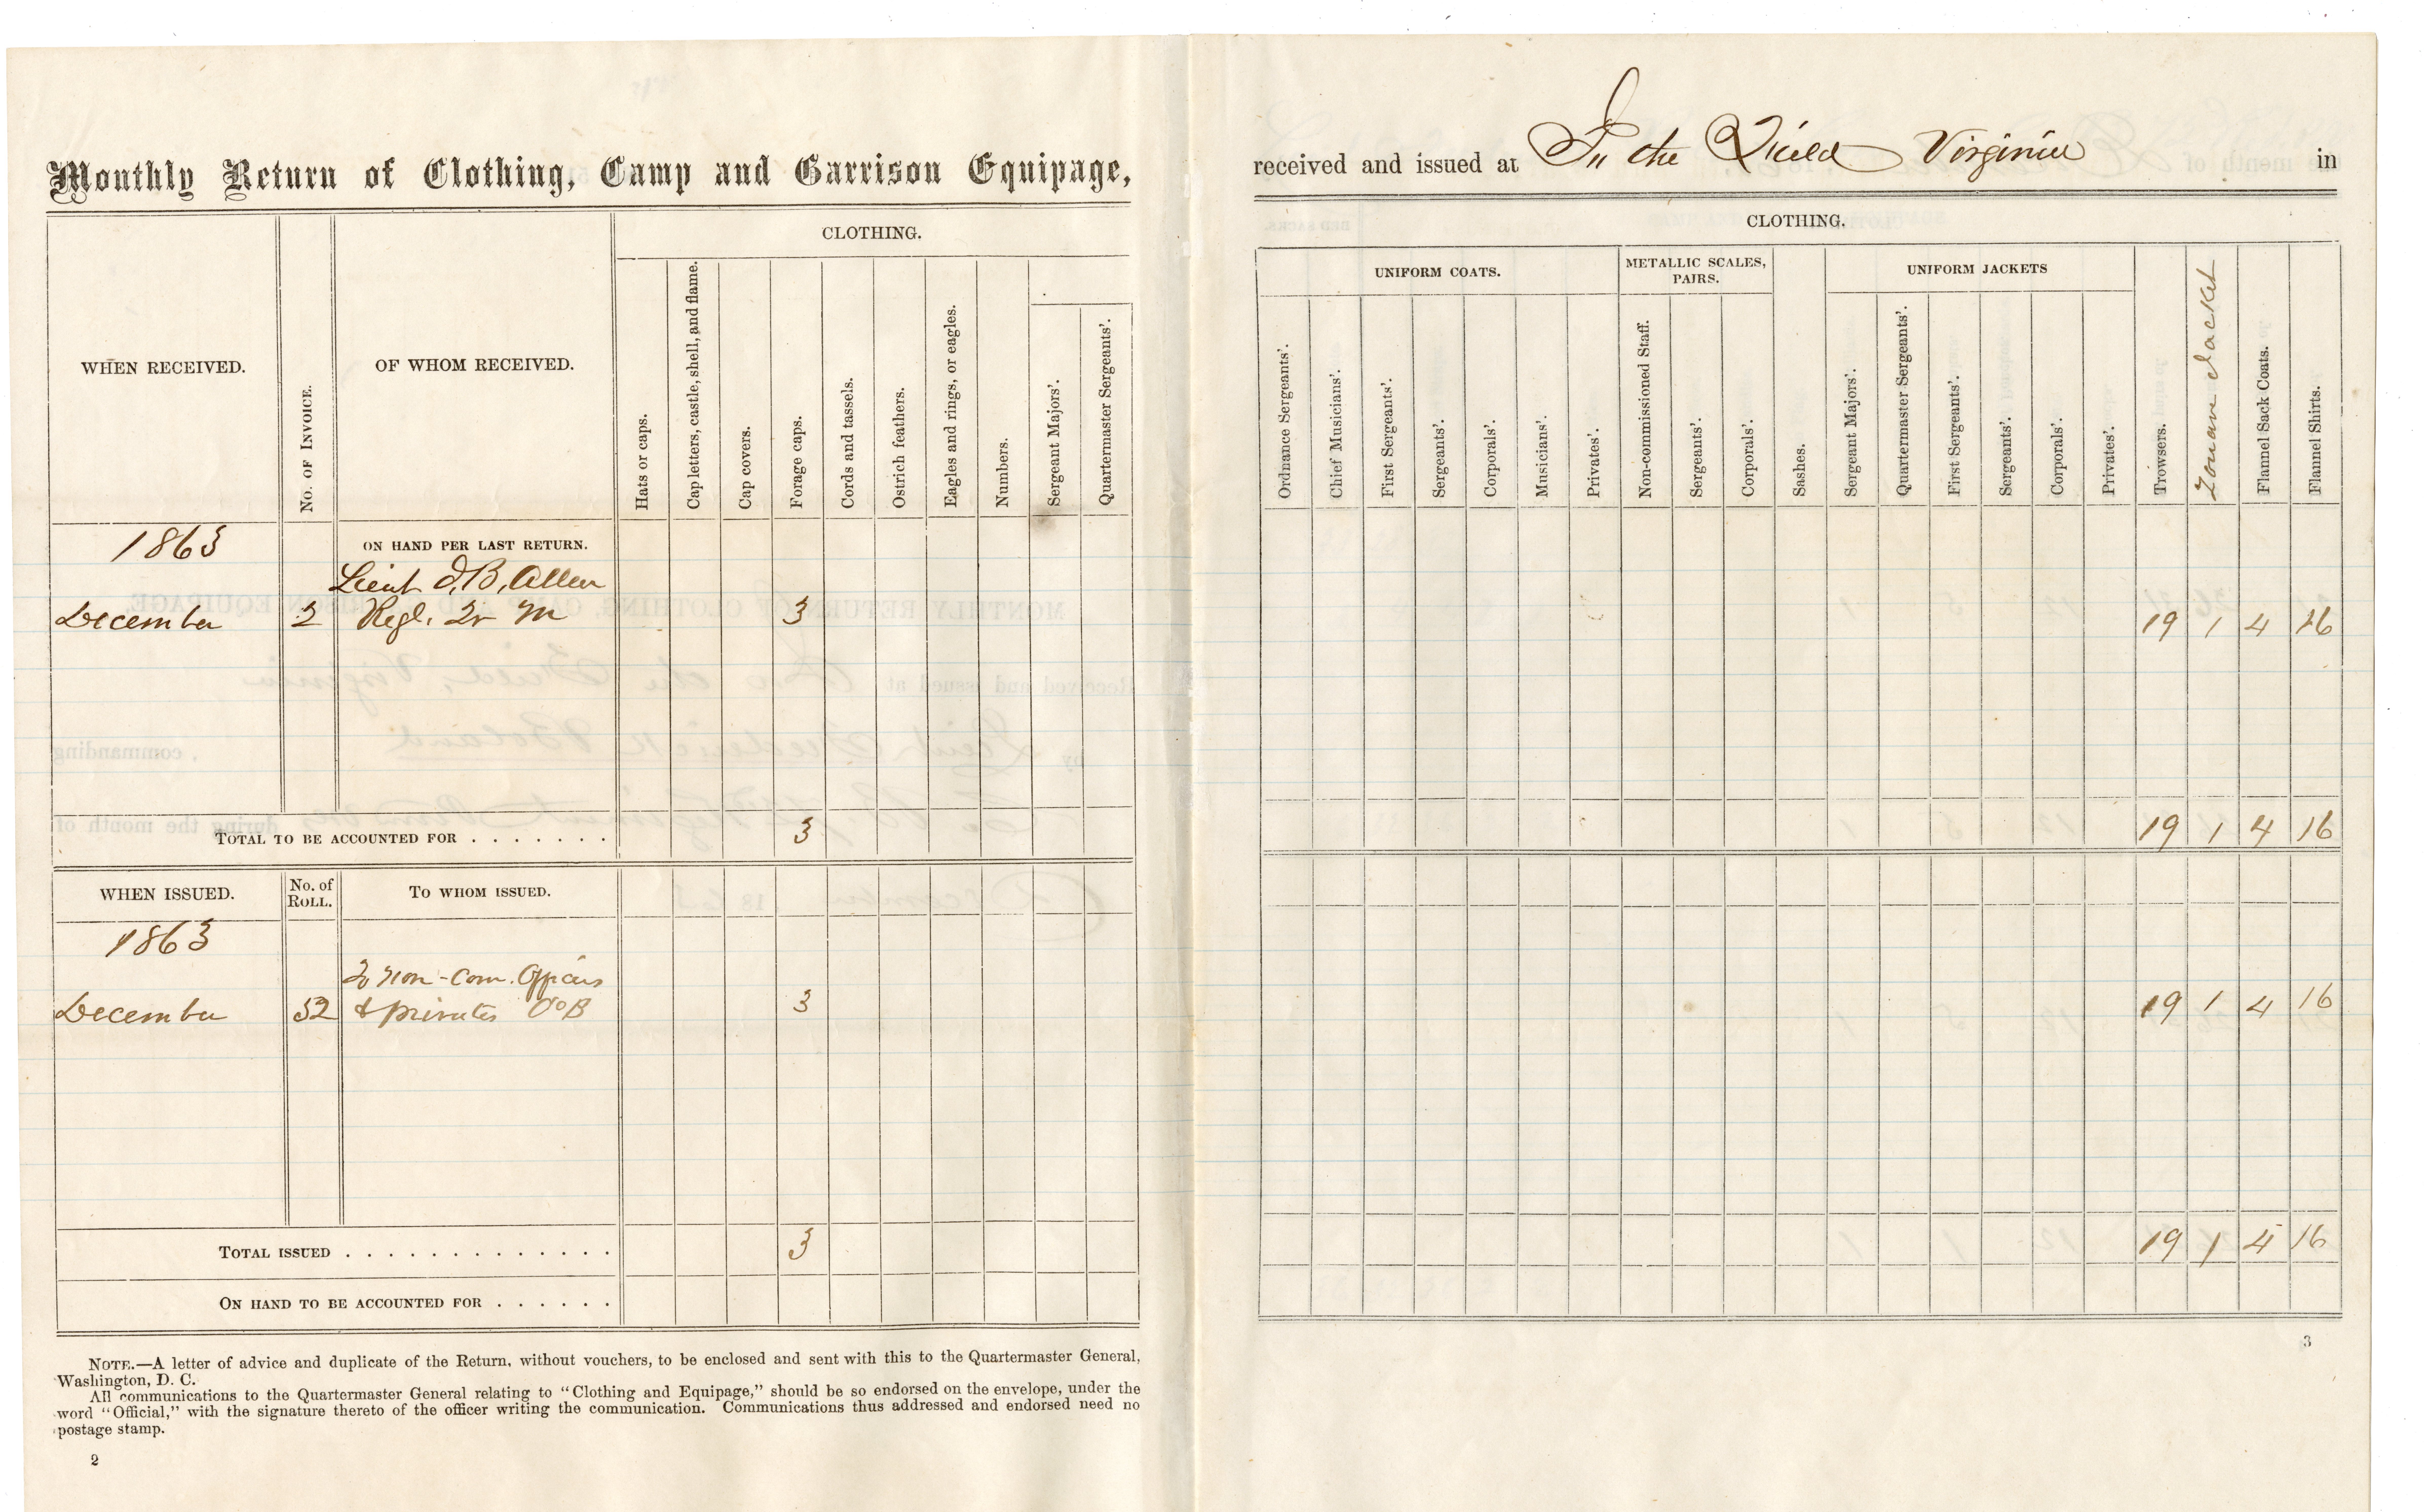 Monthly Return of Clothing, Camp and Garrison Equipage,
WHEN RECEIVED.
No. of Invoice.
OF WHOM RECEIVED.
CLOTHING.
Hats or caps.
Cap letters, castle, shell, and flame.
Cap covers.
Forage caps.
Cords and tassels.
Ostrich feathers.
Eagles and rings, or eagles.
Numbers.
Sergeant Majors'.
Quartermaster Sergeants'.
1863
ON HAND PER LAST RETURN.
Lieut J. B. Allen
December 2 Regl. Qr M 3
TOTAL TO BE ACCOUNTED FOR . . . . . . . 3
WHEN ISSUED.
No. of Roll.
To whom issued.
1863
To Non-Com. Officers
December 52 & Privates Co B 3
Total issued . . . . . . . . . . . . . 3
On hand to be accounted for . . . . . .
Note.—A letter of advice and duplicate of the Return, without vouchers, to be enclosed and sent with this to the Quartermaster General,
Washington, D. C.
All communications to the Quartermaster General relating to "Clothing and Equipage," should be so endorsed on the envelope, under the
word "Official," with the signature thereto of the officer writing the communication. Communications thus addressed and endorsed need no
postage stamp.
2
received and issued at In the Field Virginia in
CLOTHING.
UNIFORM COATS.
METALLIC SCALES, PAIRS.
UNIFORM JACKETS
Ordnance Sergeants'.
Chief Musicians'.
First Sergeants'.
Sergeants'.
Corporals'.
Musicians'.
Privates'.
Non-commissioned Staff.
Sergeants'.
Corporals'.
Sashes.
Sergeant Majors'.
Quartermaster Sergeants'.
First Sergeants'.
Sergeants'.
Corporals'.
Privates'.
Trowsers.
Zouave Jacket
Flannel Sack Coats.
Flannel Shirts.
19 1 4 16
19 1 4 16
19 1 4 16
19 1 4 16
3